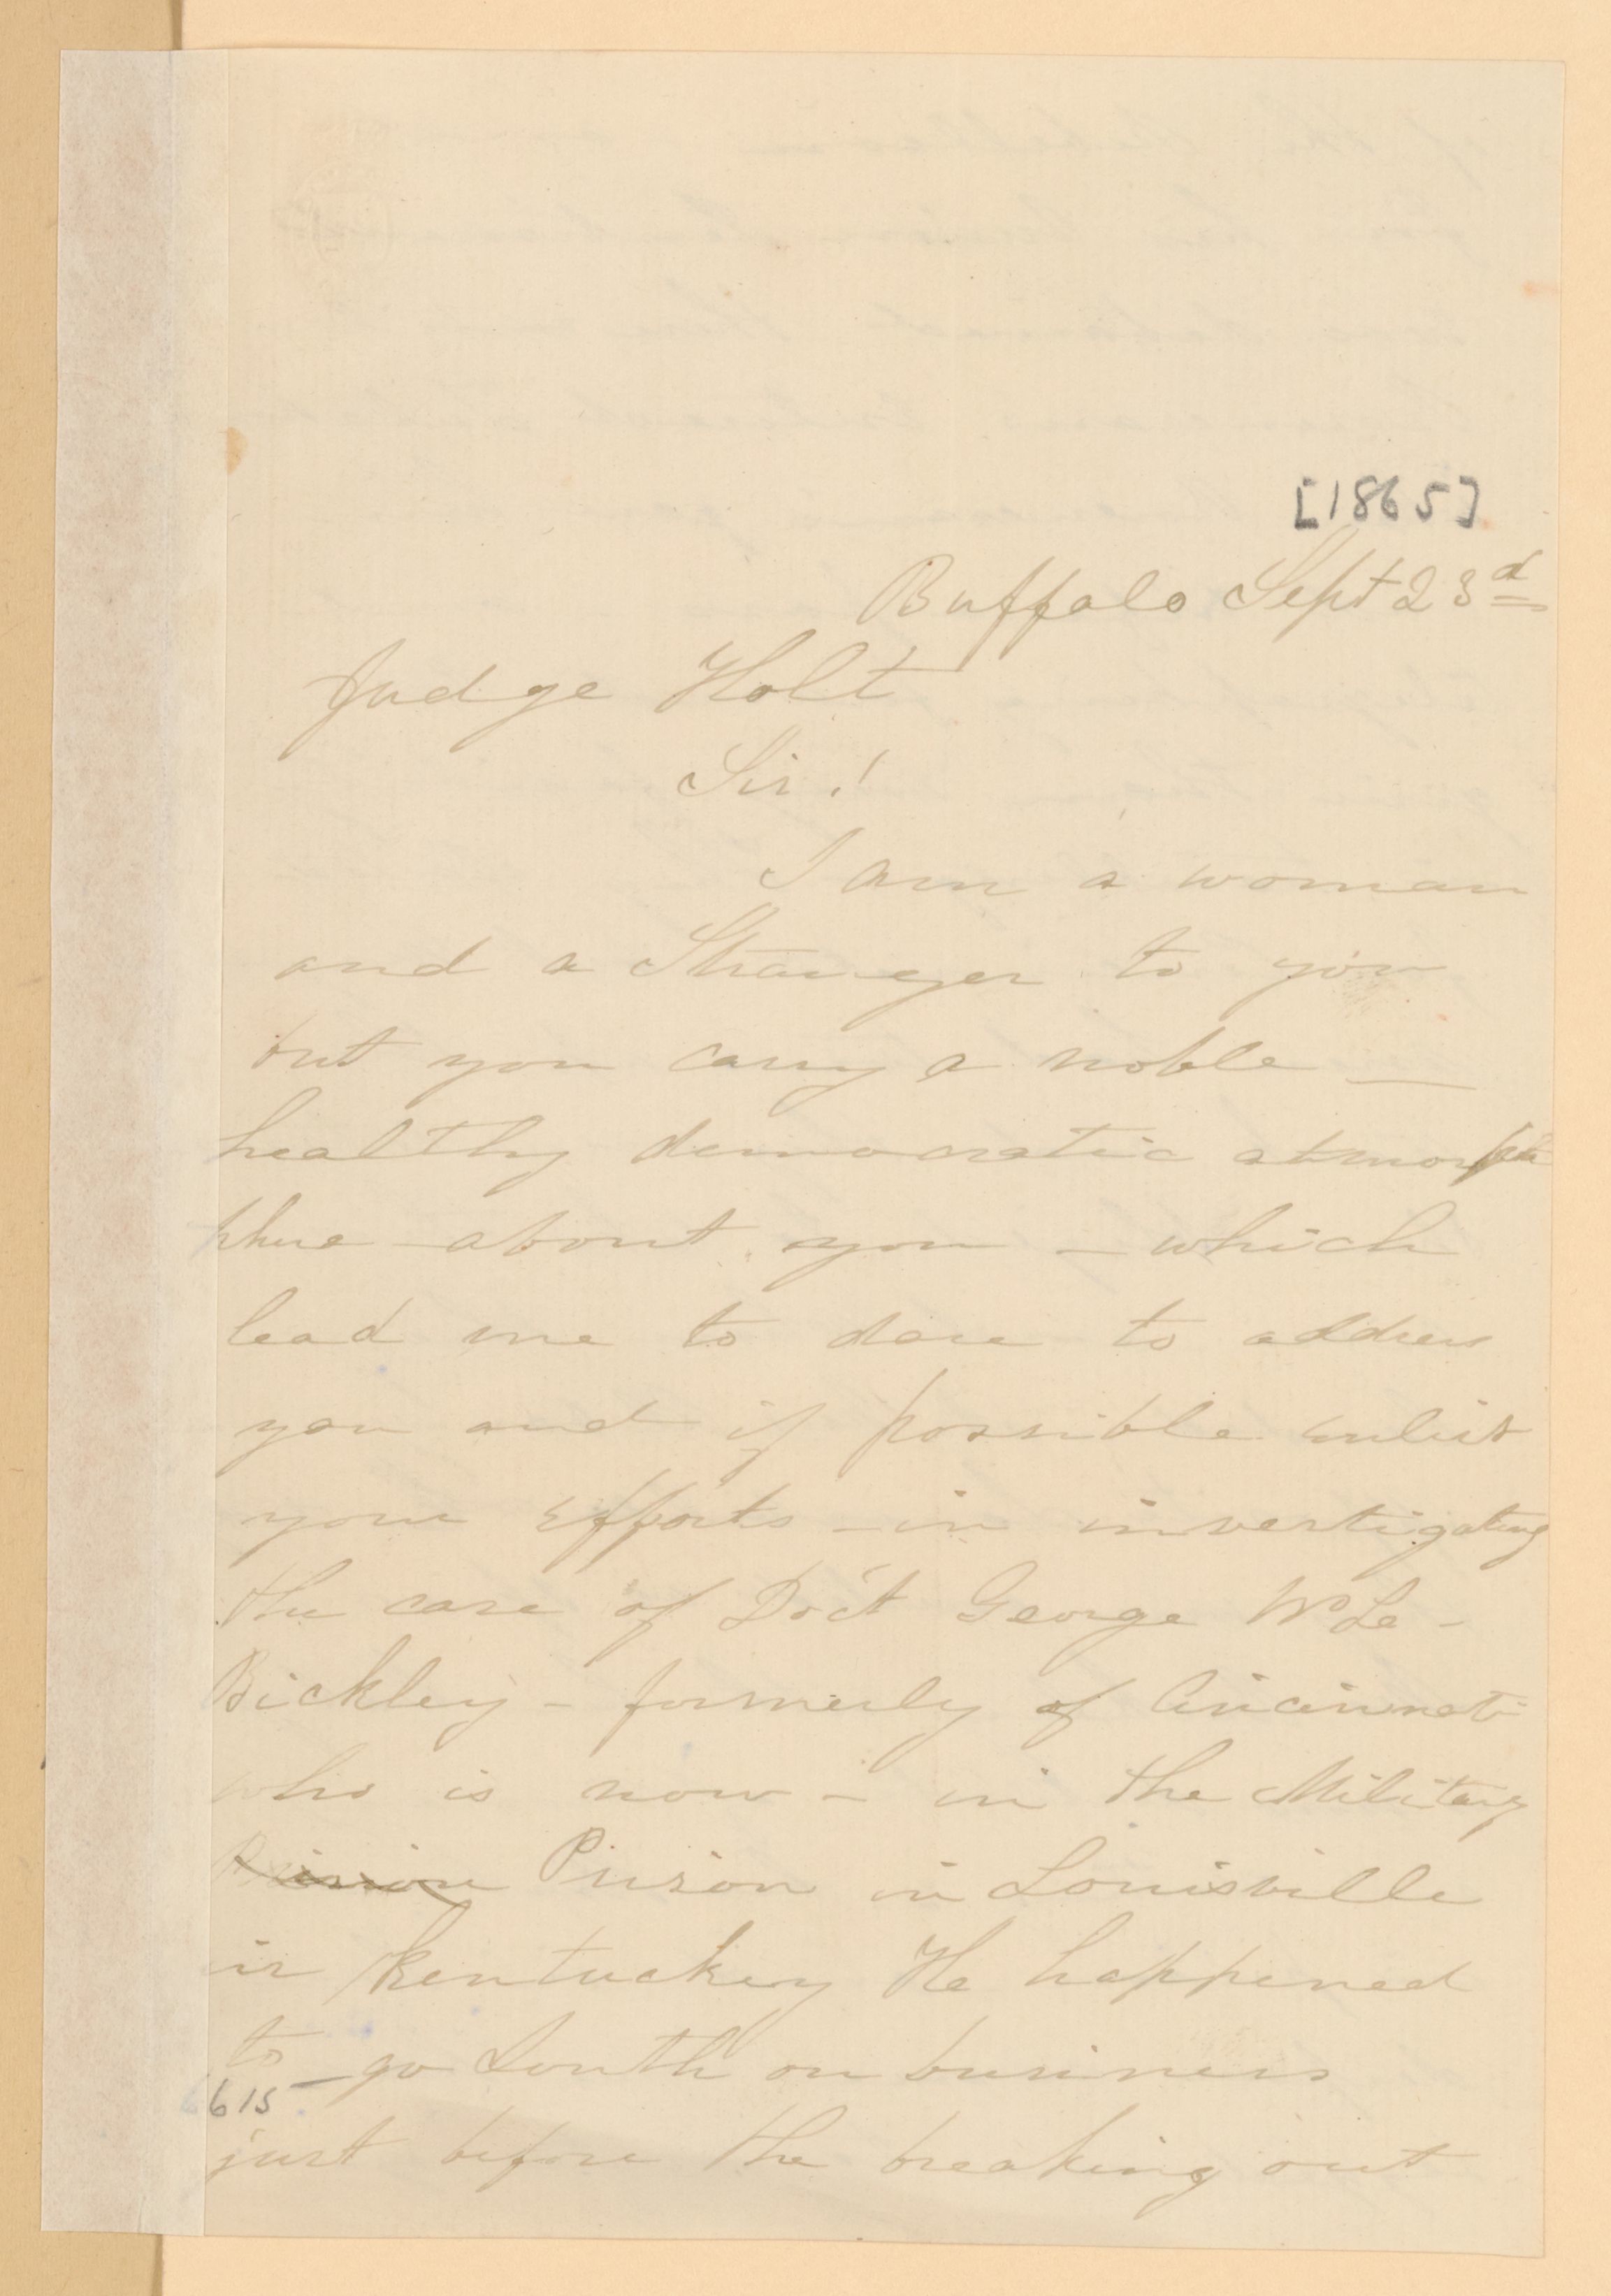 [1865]
Buffalo Sept 23d
Judge Holt
Sir!
I am a woman
and a Stranger to you
but you carry a noble —
healthy democratic atmosph
phere about you – which
lead me to dare to address
you and if possible enlist
your efforts – in investigating
the case of Doct George W Le –
Bickley – formerly of Cincinnati
who is now – in the Military
Prison Prison in Louisville
in Kentuckey He happened
to – go South on business
615
just before the breaking out